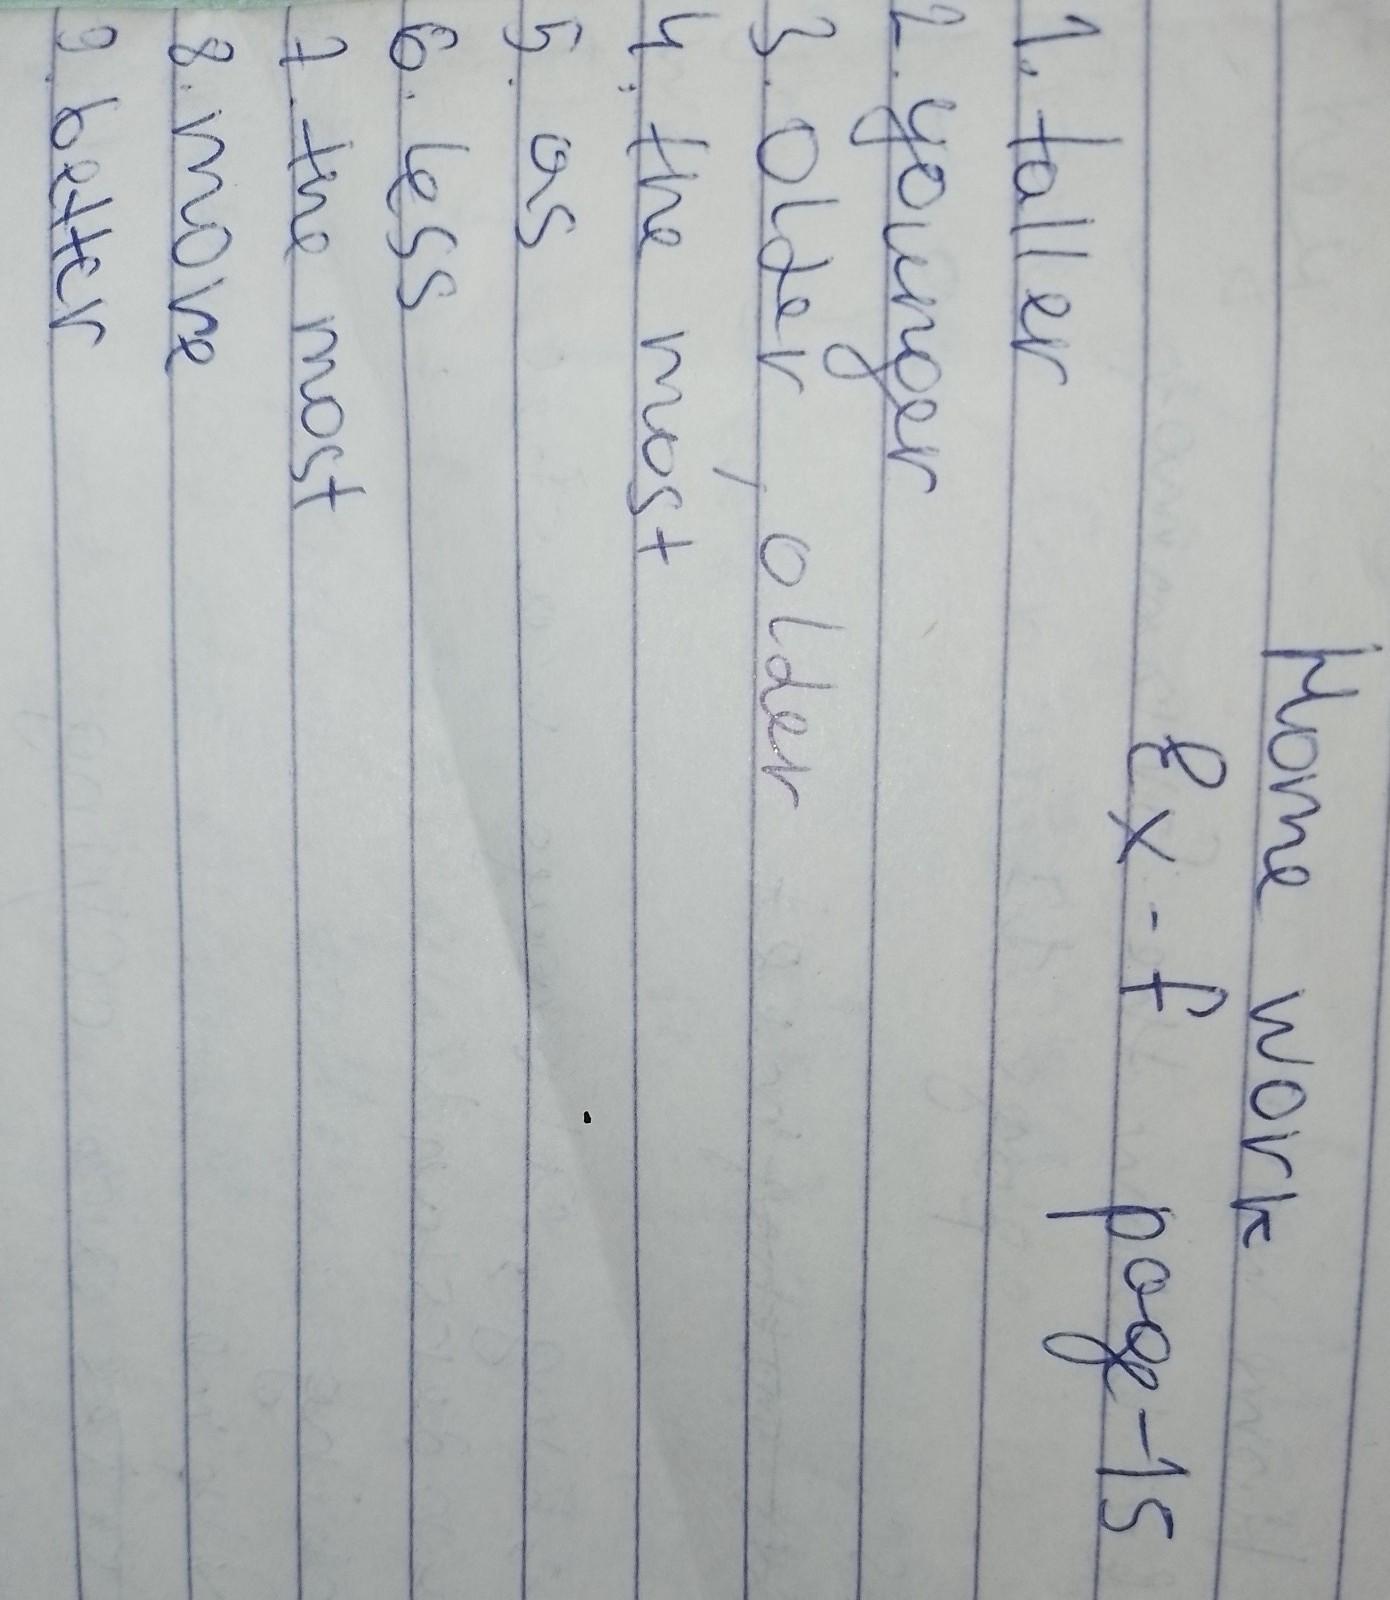 Home work
Ex - f page - 15
1. taller
2. younger
3. older, older
4. the most
5. as
6. less
7. the most
8. more
9. better